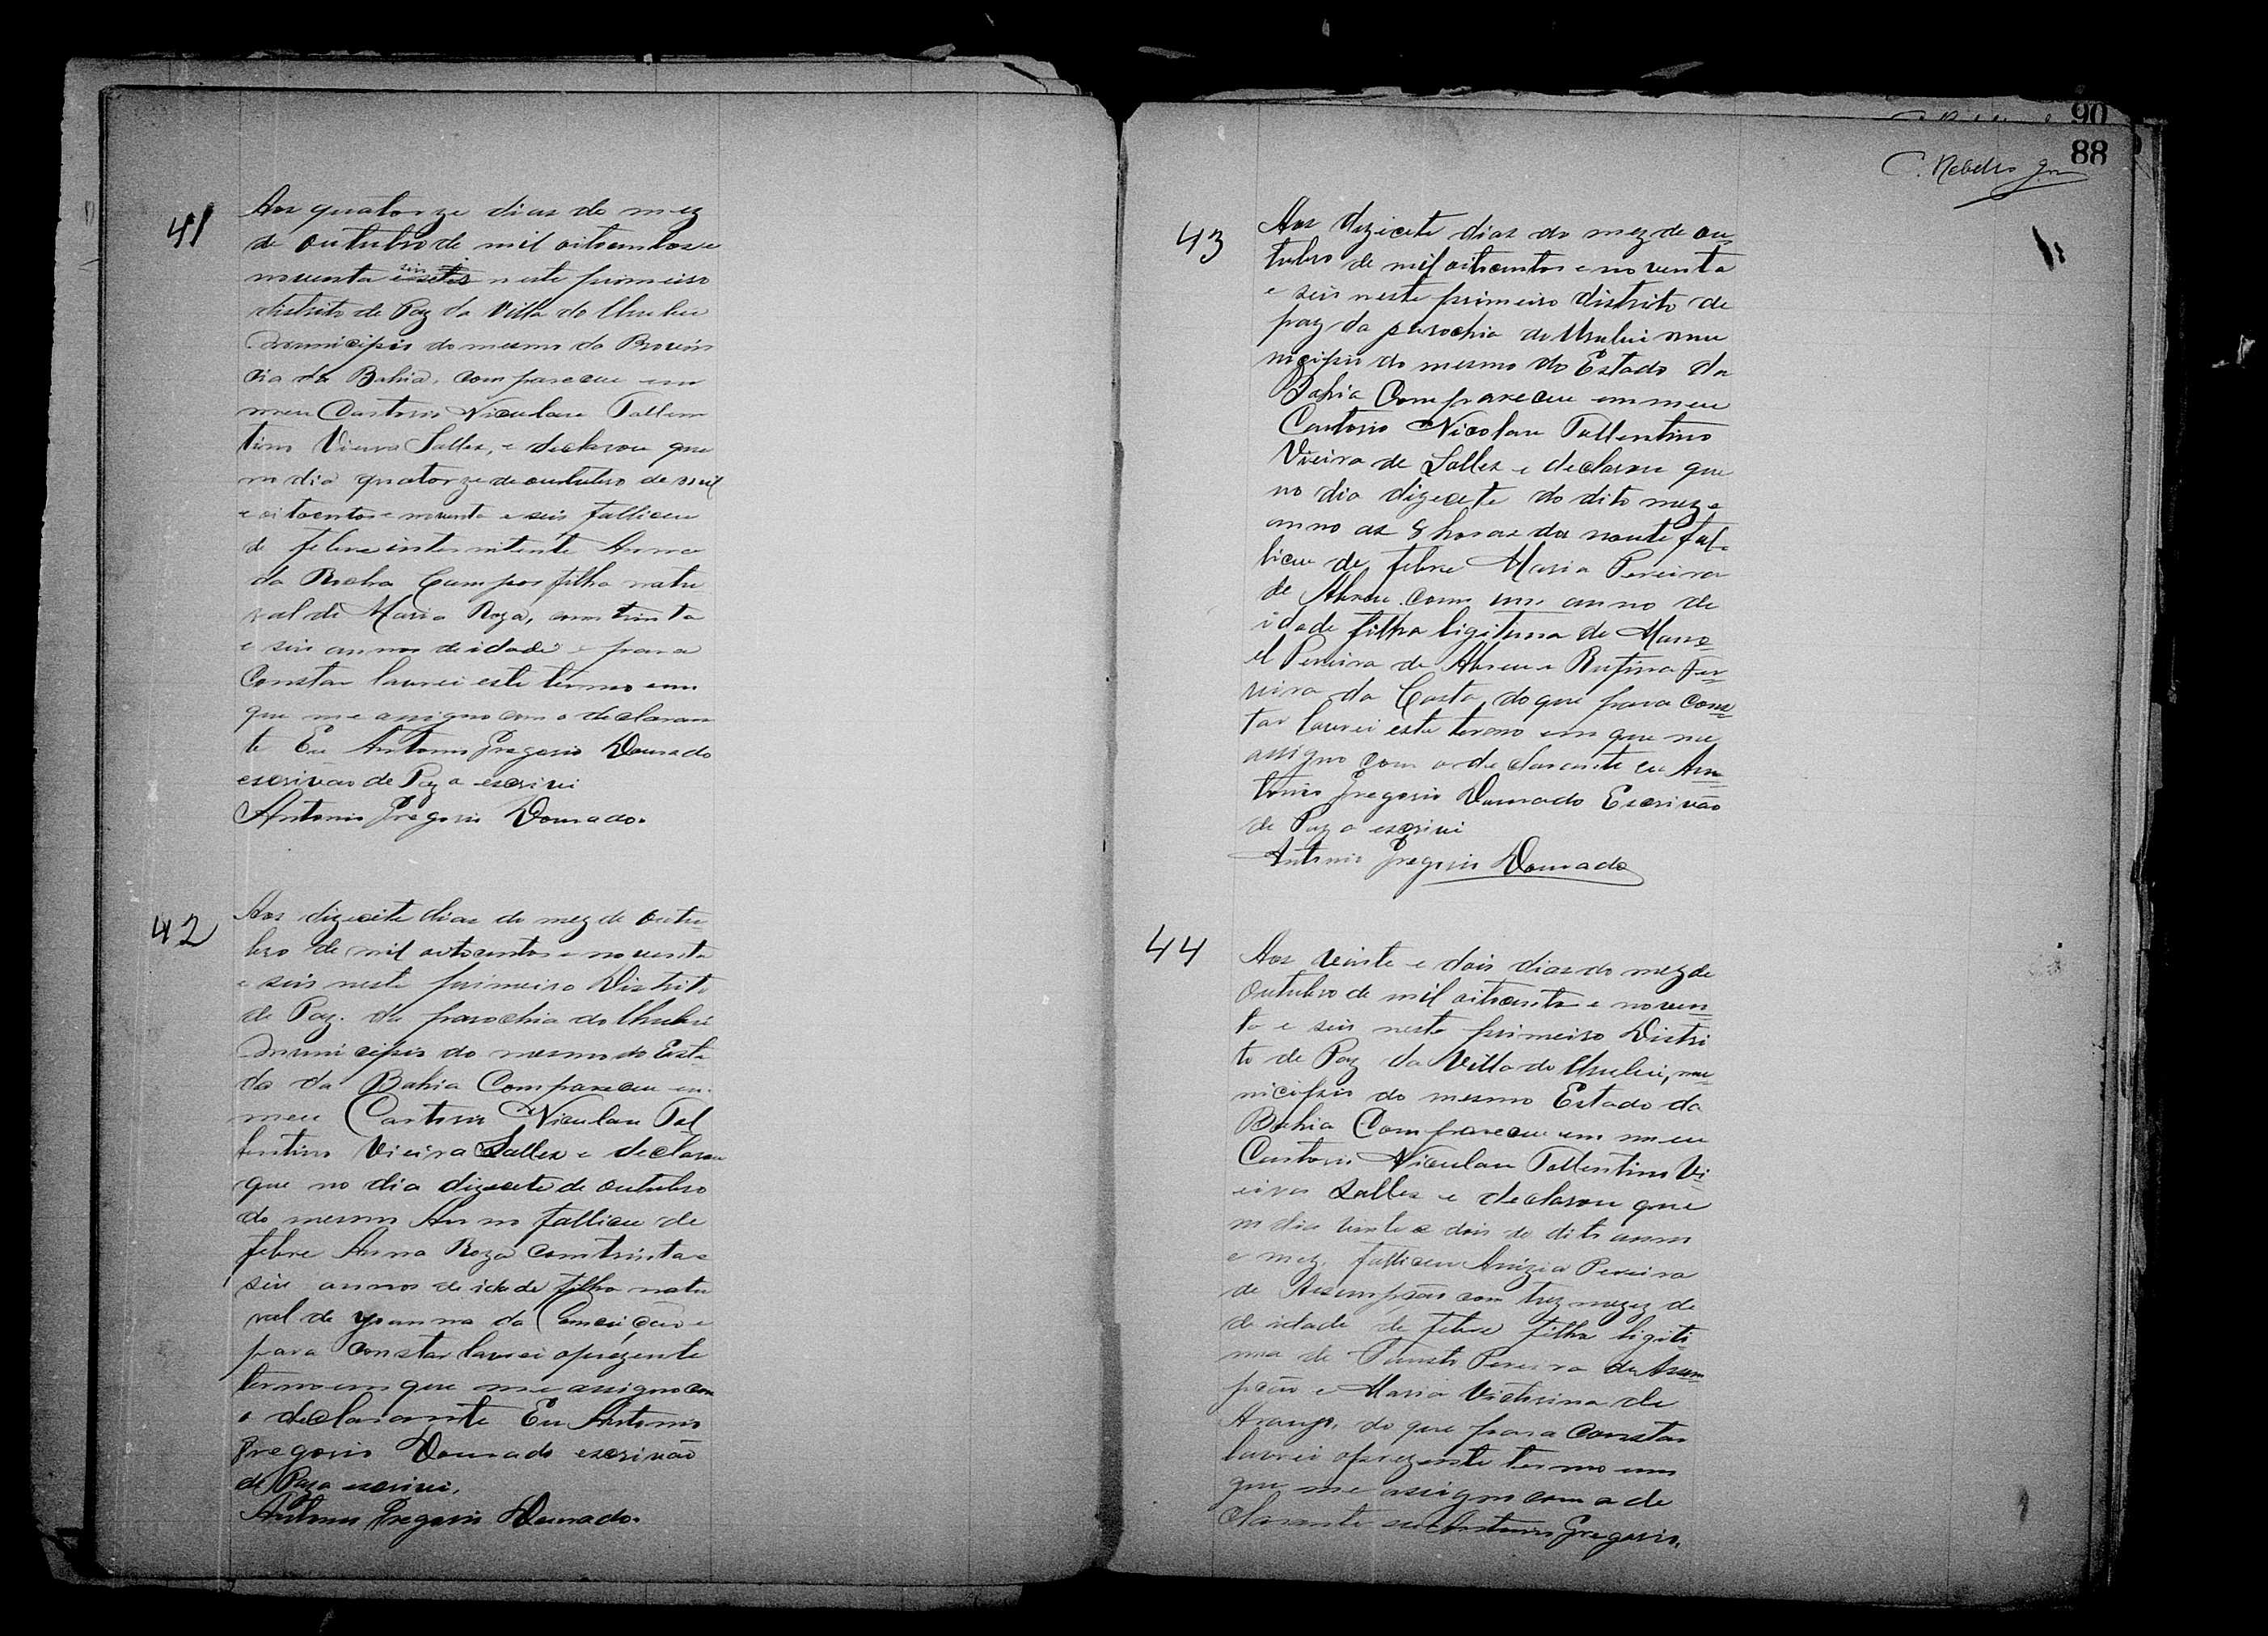 41
Aos quatorze dias do mez
de outubro de mil oitocentos e
noventa e seis neste primeiro
distrito de Paz da Villa do Urubu
municipio do mesmo da Provin
cia da Bahia, compareceu em
meu Cartorio Niculau Tollen
tino Vieira Salles, e declarou que
no dia quatorze de outubro de mil
e oitocentos e noventa e seis falliceu
de febre intermitente Anna
da Rocha Campos filha natu
ral de Maria Roza, com trinta
e seis annos de idade e para
Constar lavrei este termo em
que me assigno com o declaran
te Eu Antonio Gregorio Dourado
escrivão de Paz o escrivi
Antonio Gregorio Dourado.
42
Aos dizecete dias do mez de outu
bro de mil oitocentos e noventa
e seis neste primeiro Distrito
de Paz da parochia do Urubú
municipio do mesmo do Esta
do da Bahia Compareceu em
meu Cartorio Niculau Tol
lentino Vieira Salles e declarou
que no dia dizecete de outubro
do mesmo Anno falliceu de
febre Anna Roza com trinta e
seis annos de idade filha natu
ral de Yoanna da Conceição e
para constar lavrei o prezente
termo em que me assigno com
o declarante Eu Antonio
Gregorio Dourado escrivão
de Paz o escrivi.
Antonio Gregorio Dourado.
90
88
C. Rebello Jor
43
Aos dizicete dias do mez de ou
tubro de mil oitocentos e noventa
e seis neste primeiro distrito de
paz da parochia do Urubu mu
nicipio do mesmo do Estado da
Bahia Compareceu em meu
Cartorio Nicolau Tollentino
Vieira de Salles e declarou que
no dia dizecete do dito mez e
anno as 8 horas da noute fal
liceu de febre Maria Pereira
de Abreu com um anno de
idade filha ligitima de Mano
el Pereira de Abreu e Rufina Fer
reira da Costa, do que para cons
tar lavrei este termo em que me
assigno com o declarante eu An
tonio Gregorio Dourado Escrivão
de Paz o escrivi
Antonio Gregorio Dourado
44
Aos vinte e dois dias do mez de
Outubro de mil oitocentos e noven
ta e seis neste primeiro Distri
to de Paz da Villa do Urubú, mu
nicipio do mesmo Estado da
Bahia Compareceu em meu
Cartorio Niculau Tollentino Vi
eira Salles e declarou que
no dia vinte e dois do dito anno
e mez, falliceu Anizia Pereira
de Assumpção com trez mezez de
de idade de febre filha ligiti
ma de Fausto Pereira da Assum
pção e Maria Victurina de
Araujo, do que para Constar
lavrei o prezente termo em
que me assigno com o de
clarante eu Antonio Gregorio,